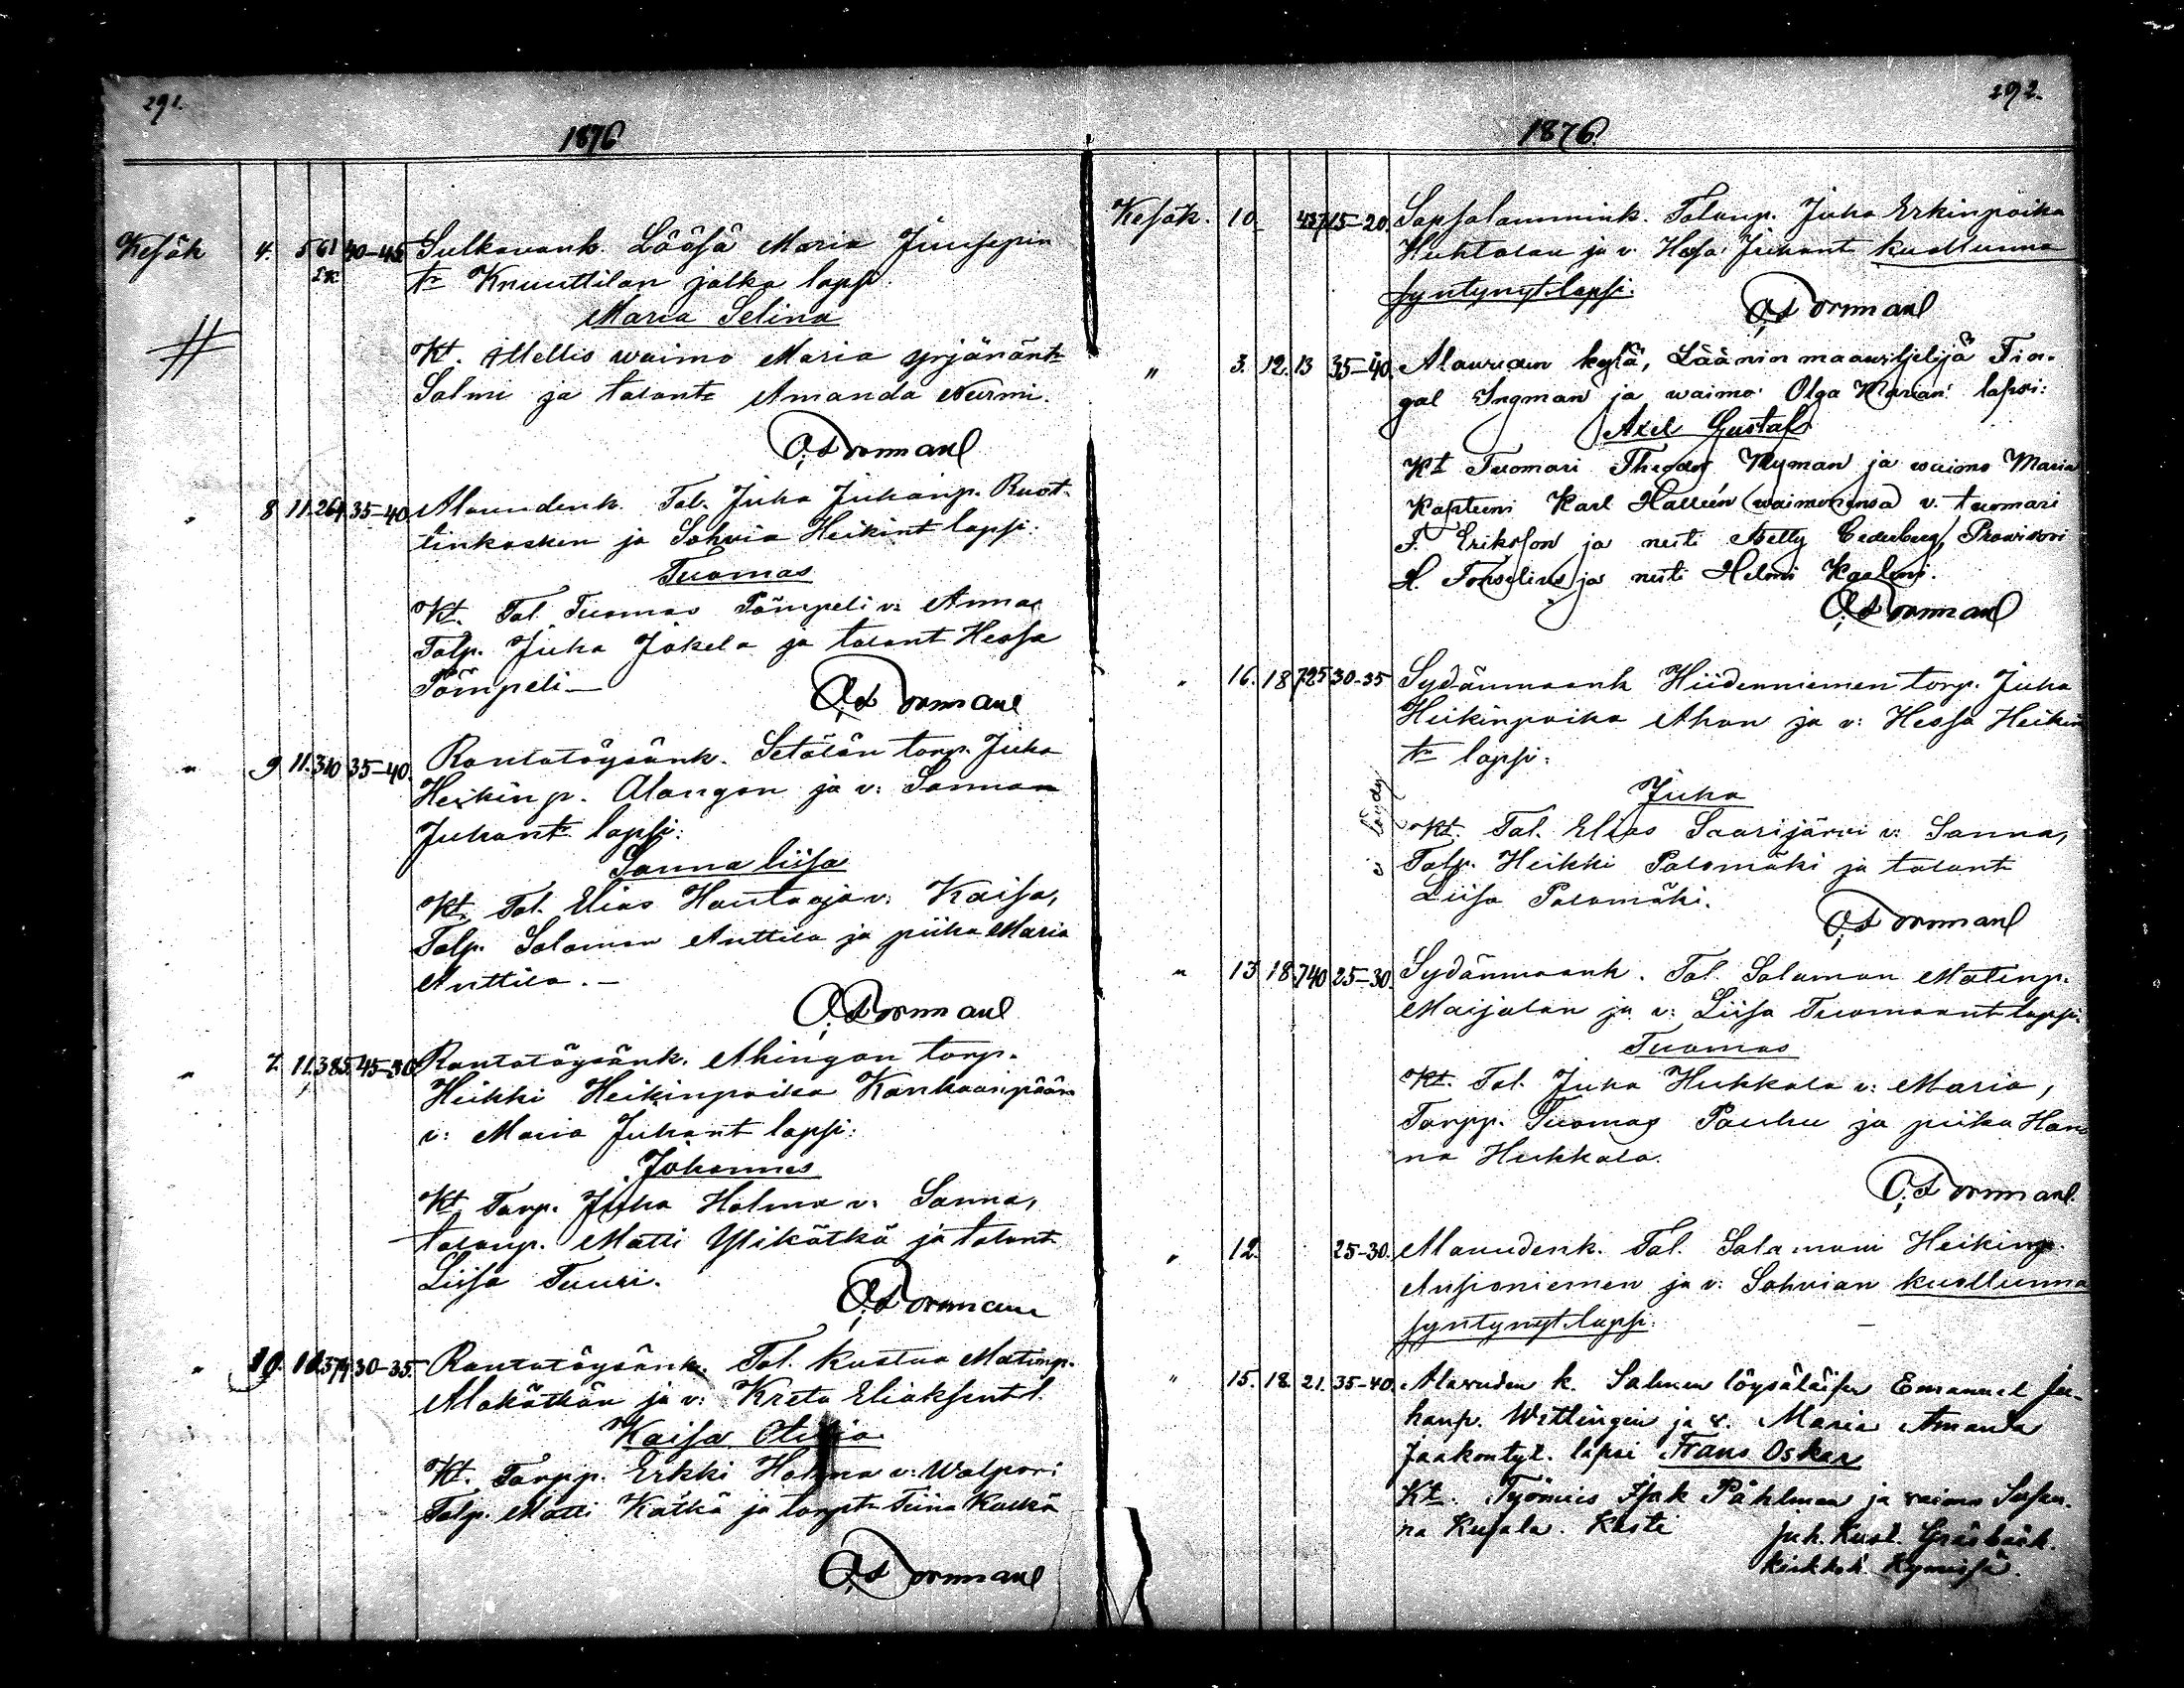 291.
1876
Kesäk 4. 5 61 40-45 Sulkavank. Löösä Maria Juusepin
IK tr Knuuttilan jalka lapsi
Maria Selina
Kt. Mellis waimo Maria Yrjänänt
Salmi ja talont Amanda Nurmi.
O. Dormanl
" 8 11. 264 35-40 Alavudenk. Tal. Juha Juhanp. Ruot-
tinkosken ja Sohvia Heikint lapsi:
Tuomas
Kt. Tal. Tuomas Pömpeli v: Anna
Talp. Juha Jokela ja talont Hessa
Pömpeli —
O. Dormanl
" 9 11. 310 35-40. Rantatöysänk. Setälän torp. Juha
Heikinp. Alangon ja v: Sannan
Juhant. lapsi:
Sanna Liisa
Kt. Tal. Elias Hautaoja v: Kaisa,
Talp. Salomon Anttila ja piika Maria
Anttila. —
O. Dormanl
" 7. 11. 385 45-50 Rantatöysänk. Ahingon torp.
Heikki Heikinpoika Kankaanpään
v: Maria Juhant lapsi:
Johannes
Kt. Torp. Juha Holma v: Sanna,
talonp. Matti Ylikätkä ja talont
Liisa Tuuri.
O. Dormanl
" 10. 574 30-35. Rantatöysänk. Tal. Kustaa Matinp.
Alakätkän ja v: Kreta Eliaksent l.
Kaisa Otilia
Kt. Torpp. Erkki Holma v: Walpori
Talp. Matti Kätkä ja torpt. Tiina
O. Dormanl
292.
1876.
Kesäk. 10. 437 15-20. Sapsalammink. Talonp. Juha Erkinpoika
Huhtalan ja v: Hessa Juhant kuolluna
syntynyt lapsi.
O. Dormanl
" 3. 12. 13 35-40. Alavuden kylä, Läänin maanviljelijä Fin-
gal Ingman ja waimo Olga Marian lapsi:
Axel Gustaf
Kt Tuomari Theodor Nyman ja waimo Maria
Kapteeni Karl Halleén (waimonensa) v. tuomari
F. Eriksson ja neiti Betty Cederberg, Proviisori
A. Forselius ja neiti Helmi
O. Dormanl
" 16. 18 725 30-35 Sydänmaank Hiidenniemen torp. Juha
Heikinpoika Ahon ja v: Hessa Heikin
tr lapsi:
Juha
ei löydy
Kt. Tal. Elias Saarijärvi v: Sanna,
Talp. Heikki Palomäki ja talont
Liisa Palomäki.
O. Dormanl
" 13 18. 740 25-30. Sydänmaank. Tal. Salomon Matinp.
Maijalan ja v: Liisa Tuomaant lapsi:
Tuomas
Kt. Tal. Juha Huhkala v: Maria,
Torpp. Tuomas Pouhu ja piika Han
na Huhkala.
O. Dormanl
" 12. 25-30. Alavudenk. Tal. Salamoni Heikinp.
Ansioniemen ja v: Sohvian kuolluna
syntynyt lapsi. —
" 15. 18. 21. 35-40 Alavuden k. Salmen löysäläisen Emanuel Ju-
hanp. Wettingin ja v. Maria Amanda
Jaakontyt. lapsi Frans Oskar
Kt. Työmies Isak Påhlman ja vaimo Susan-
na Kujala. Kasti
Juh. Kust. Gräsbäck.
kirkkoh. Kymissä.